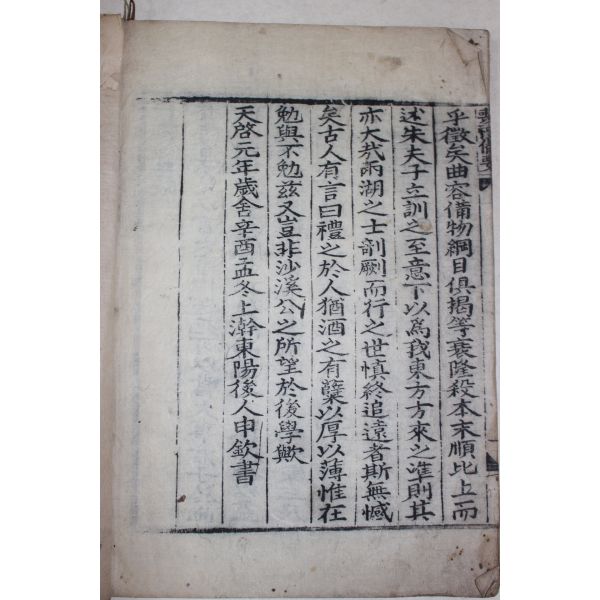 喪禮備要
乎徵矣曲容備物綱目俱揭等衰隆殺本末順比上而
述朱夫子立訓之至意下以爲我東方方來之準則其
亦大哉兩湖之士剞劂而行之世愼終追遠者斯無憾
矣古人有言曰禮之於人猶酒之有蘖以厚以薄惟在
勉與不勉玆又豈非沙溪公之所望於後學歟
天啓元年歲舍辛酉孟冬上澣東陽後人申欽書